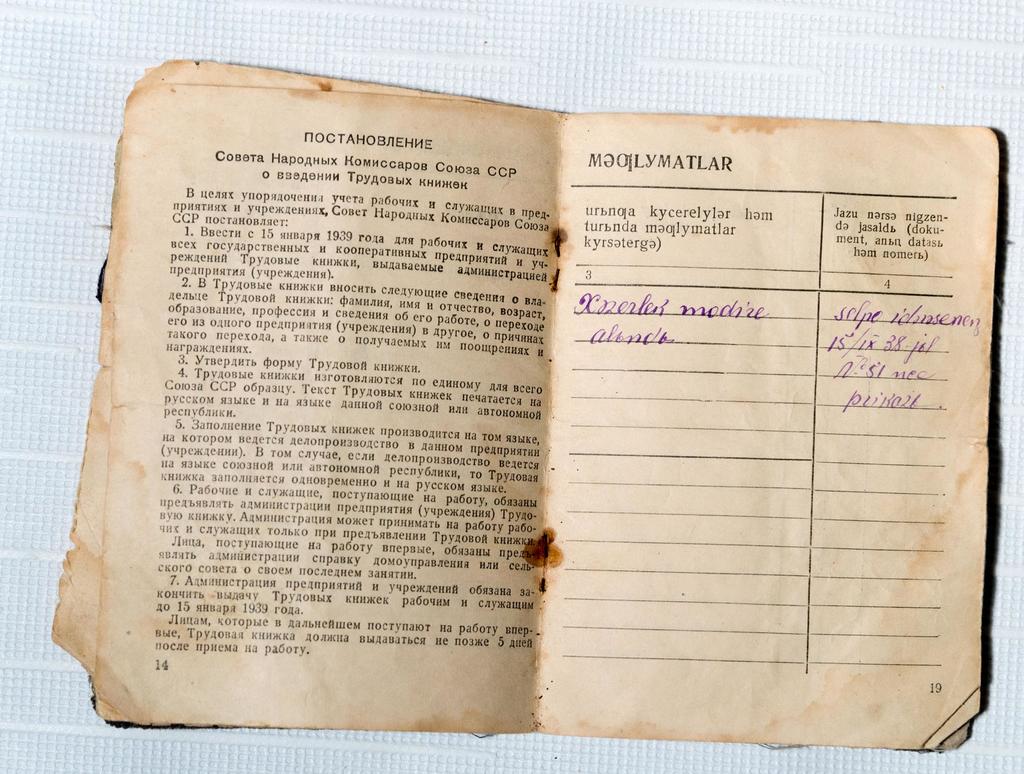 ПОСТАНОВЛЕНИЕ
Совета Народных Комиссаров Союза ССР
о введении Трудовых книжек
В целях упорядочения учета рабочих и служащих в пред-
приятиях и учреждениях, Совет Народных Комиссаров Союза
ССР постановляет:
1. Ввести с 15 января 1939 года для рабочих и служащих
всех государственных и кооперативных предприятий и уч-
реждений Трудовые книжки, выдаваемые администрацией
предприятия (учреждения).
2. В Трудовые книжки вносить следующие сведения о вла-
дельце Трудовой книжки: фамилия, имя и отчество, возраст,
образование, профессия и сведения об его работе, о переходе
его из одного предприятия (учреждения) в другое, о причинах
такого перехода, а также о получаемых им поощрениях и
награждениях.
3. Утвердить форму Трудовой книжки.
4. Трудовые книжки изготовляются по единому для всего
Союза ССР образцу. Текст Трудовых книжек печатается на
русском языке и на языке данной союзной или автономной
республики.
5. Заполнение Трудовых книжек производится на том языке,
на котором ведется делопроизводство в данном предприятии
(учреждении). В том случае, если делопроизводство ведется
на языке союзной или автономной республики, то Трудовая
книжка заполняется одновременно и на русском языке.
6. Рабочие и служащие, поступающие на работу, обязаны
предъявлять администрации предприятия (учреждения) Трудо-
вую книжку. Администрация может принимать на работу рабо-
чих и служащих только при предъявлении Трудовой книжки.
Лица, поступающие на работу впервые, обязаны предъ-
являть администрации справку домоуправления или сель-
ского совета о своем последнем занятии.
7. Администрация предприятий и учреждений обязана за-
кончить выдачу Трудовых книжек рабочим и служащим
до 15 января 1939 года.
Лицам, которые в дальнейшем поступают на работу впер-
вые, Трудовая книжка должна выдаваться не позже 5 дней
после приема на работу.
14
MƏƢLYMATLAR
urьnƣa kycerelylər həm
turьnda məƣlymatlar
kyrsətergə)
Jazu nərsə nigzen-
də jasaldь (doku-
ment, anьꞑ datasь
həm nomerь)
3
4
modire
alьndь
15/IX 38 jel
№ 51 nce
prikazь.
19